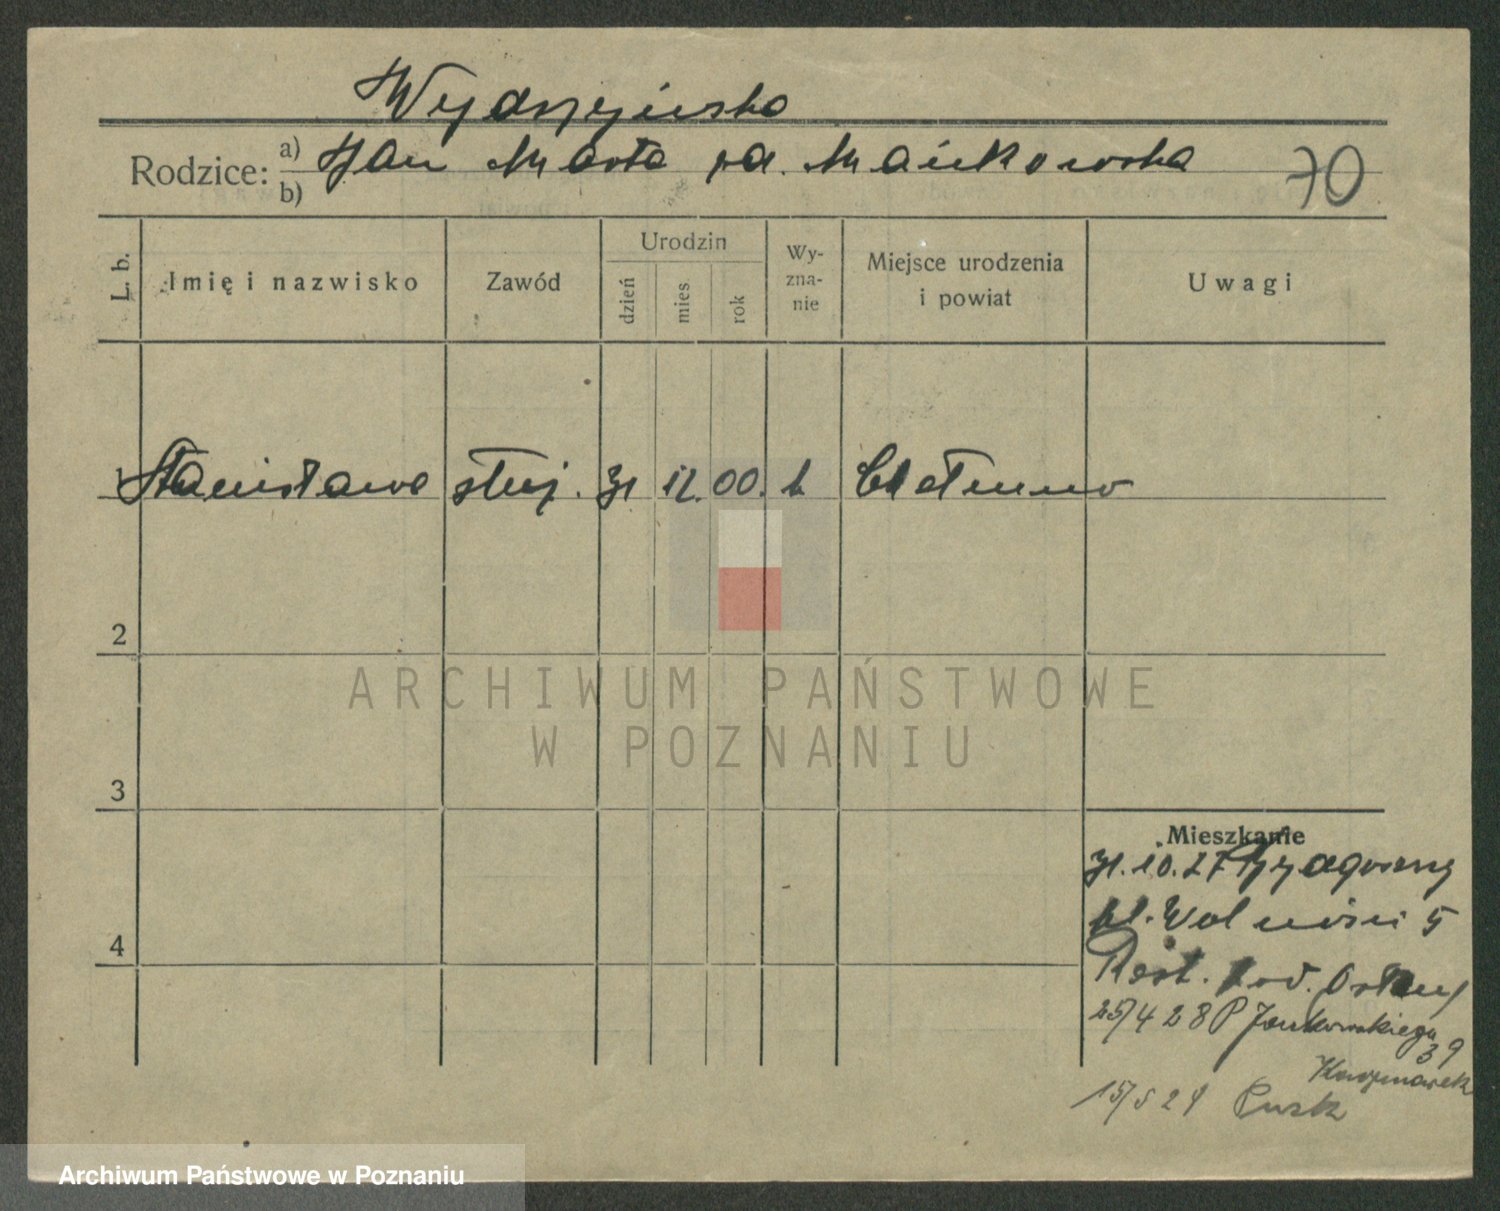 Wydrzyńska
Rodzice: a) Jan Marta rd. Mańkowska 70
b)
L. b. Imię i nazwisko Zawód Urodzin dzień mies. rok Wyznanie Miejsce urodzenia i powiat Uwagi
1 Stanisława służ. 31 12. 00. k Chełmno
2
3
4
Mieszkanie
31.10.27 Bydgoszcz
pl. Wolności 5
Rest. Pod. Orłem
25/4 28 P Jankowskiego
39
Kaczmarek
15/5 29 Pusk
ARCHIWUM PAŃSTWOWE
W POZNANIU
Archiwum Państwowe w Poznaniu